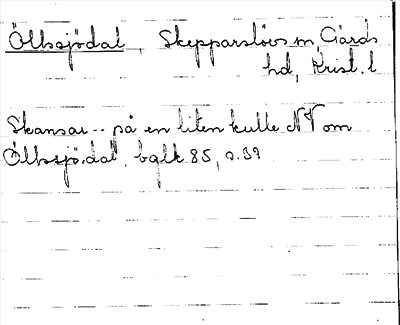 Öllsjödal, Skepparslövs sn, Gärds
hd, Krist. l
Skansar -- på en liten kulle NV om
Öllsjödal. bqlk 85, s. 39